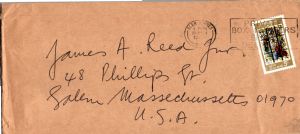 James A. Reed Jnr.
48 Phillips St.
Salem Massechussetts 01970
U.S.A